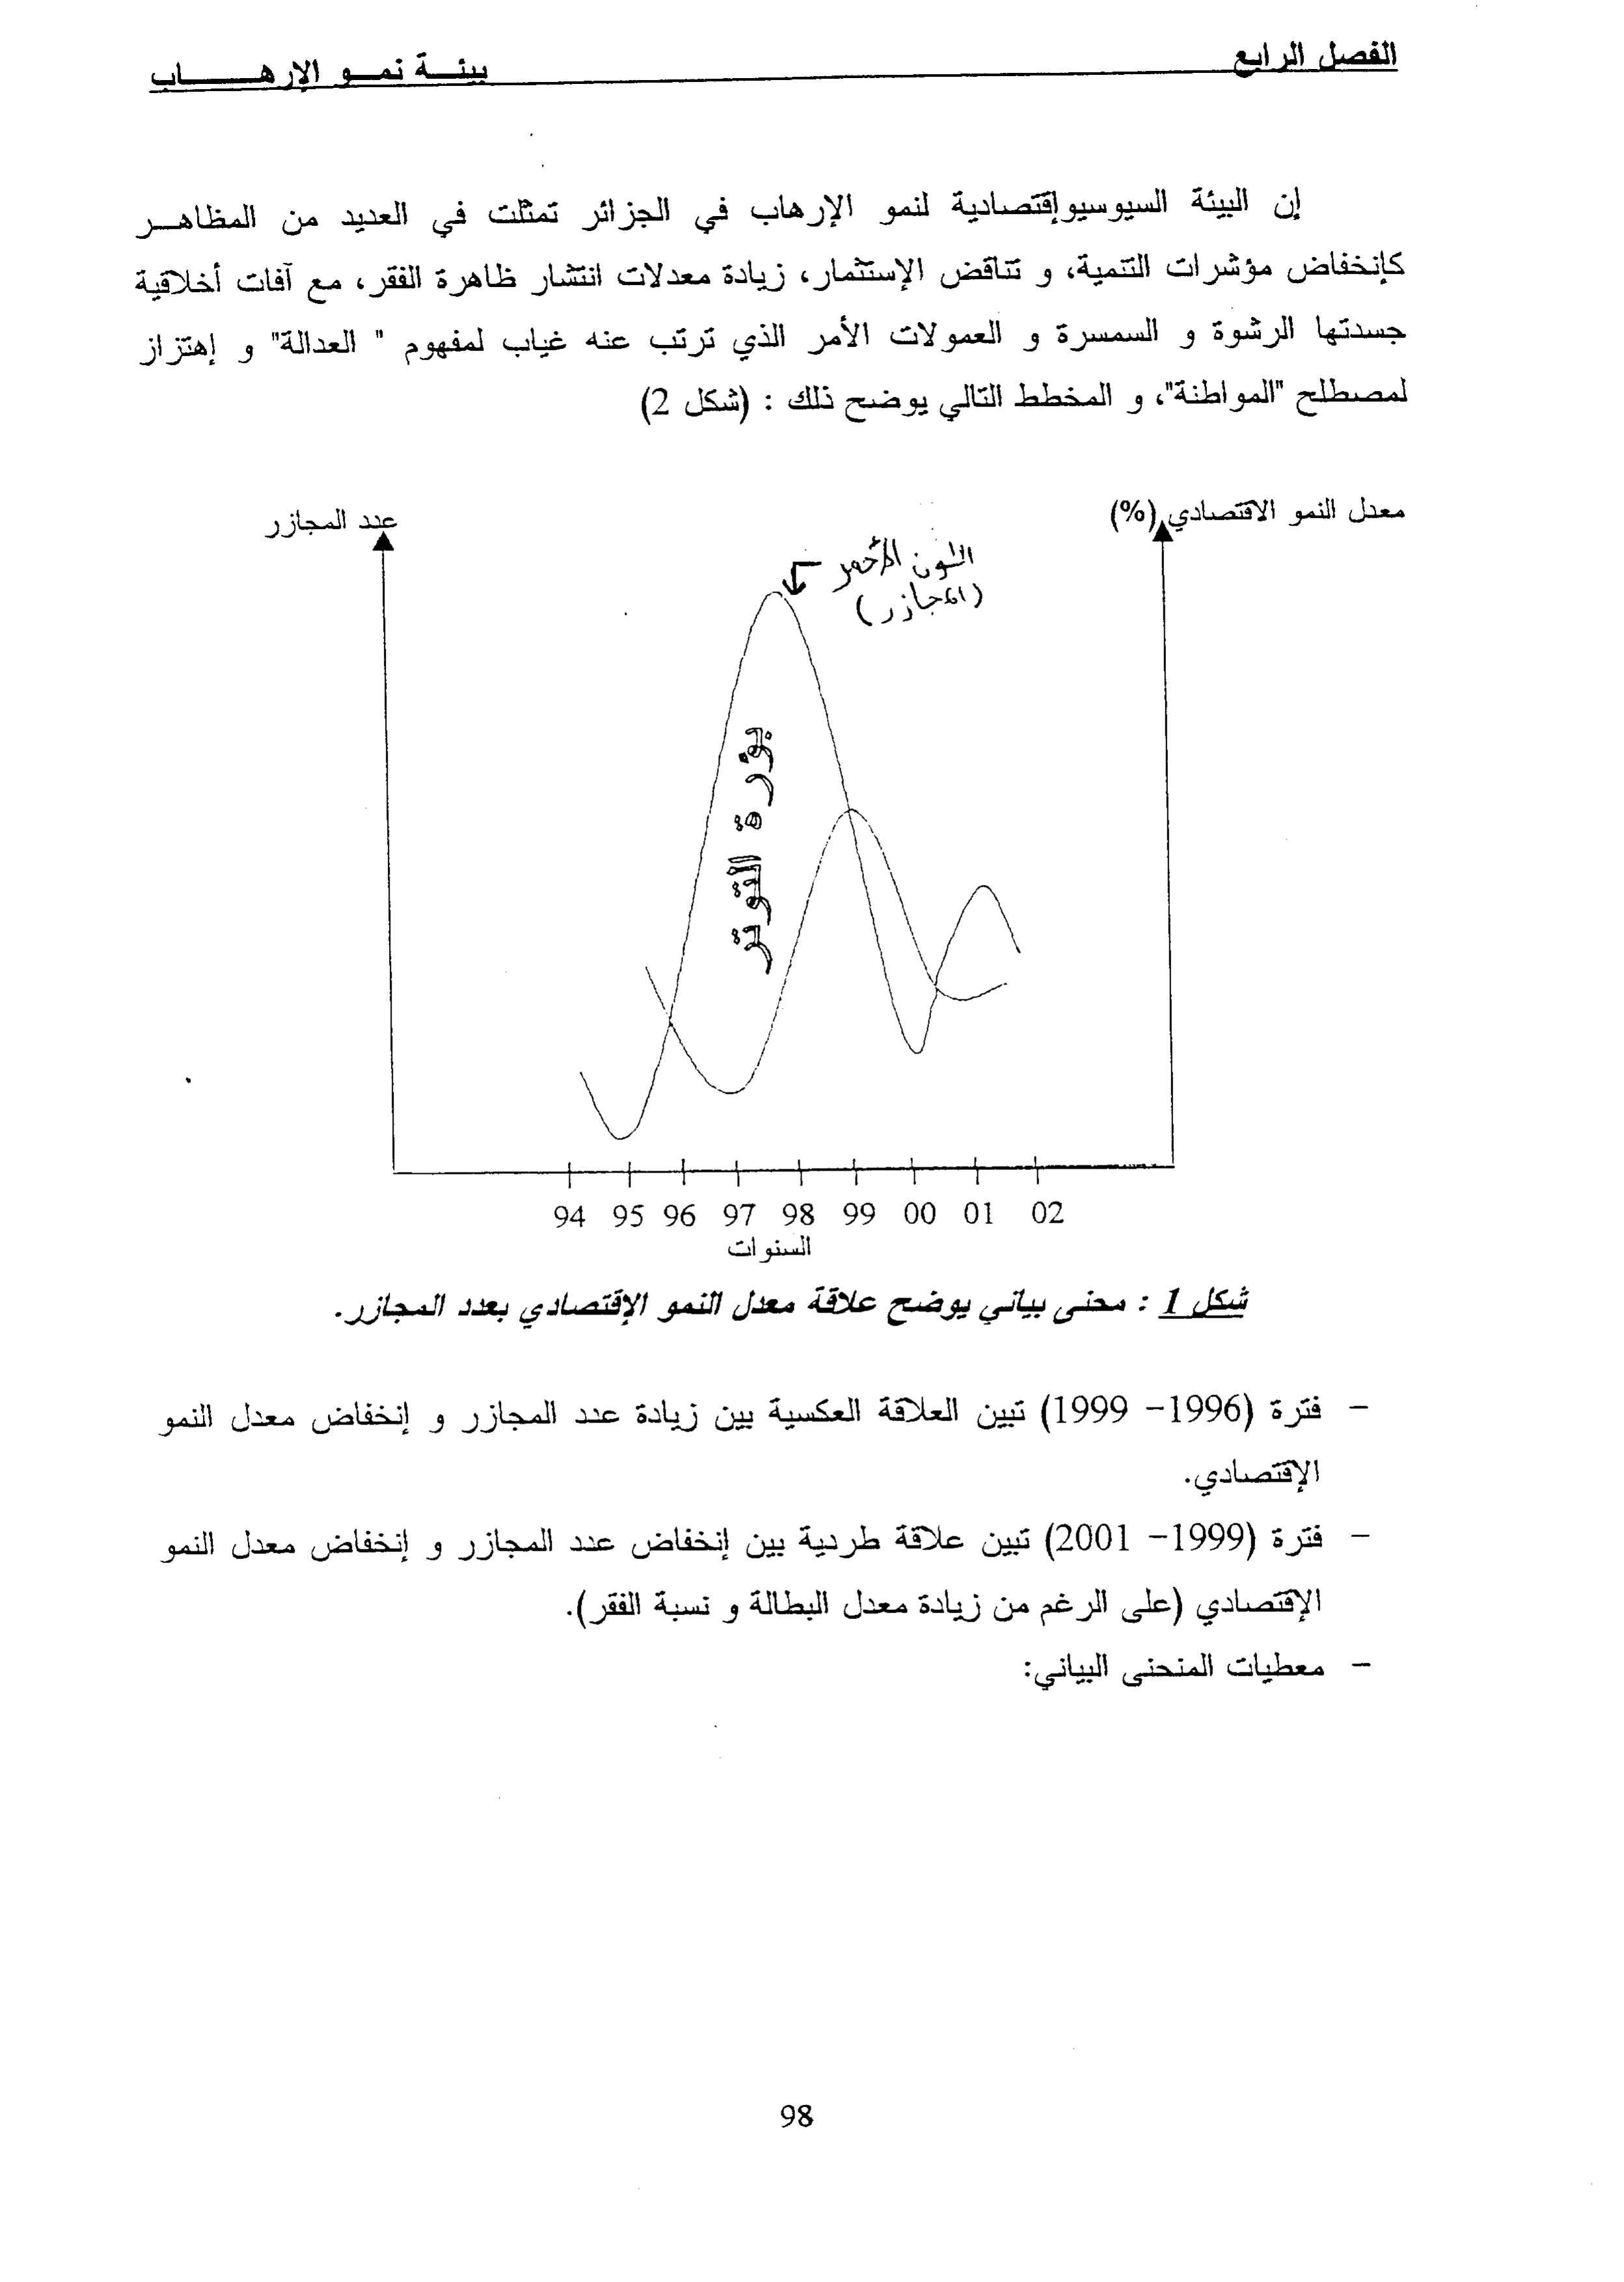 الفصل الرابع
بيئة نمو الإرهاب
إن البيئة السيوسيوإقتصادية لنمو الإرهاب في الجزائر تمثلت في العديد من المظاهر
كإنخفاض مؤشرات التنمية، و تناقض الإستثمار، زيادة معدلات انتشار ظاهرة الفقر، مع آفات أخلاقية
جسدتها الرشوة و السمسرة و العمولات الأمر الذي ترتب عنه غياب لمفهوم " العدالة" و إهتزاز
لمصطلح "المواطنة"، و المخطط التالي يوضح ذلك : (شكل 2)
معدل النمو الاقتصادي (%)
عدد المجازر
اللون الأحمر
(المجازر)
بؤرة التوتر
94 95 96 97 98 99 00 01 02
السنوات
شكل 1 : محنى بياني يوضح علاقة معدل النمو الإقتصادي بعدد المجازر.
- فترة (1996- 1999) تبين العلاقة العكسية بين زيادة عدد المجازر و إنخفاض معدل النمو
الإقتصادي.
- فترة (1999- 2001) تبين علاقة طردية بين إنخفاض عدد المجازر و إنخفاض معدل النمو
الإقتصادي (على الرغم من زيادة معدل البطالة و نسبة الفقر).
- معطيات المنحنى البياني:
98